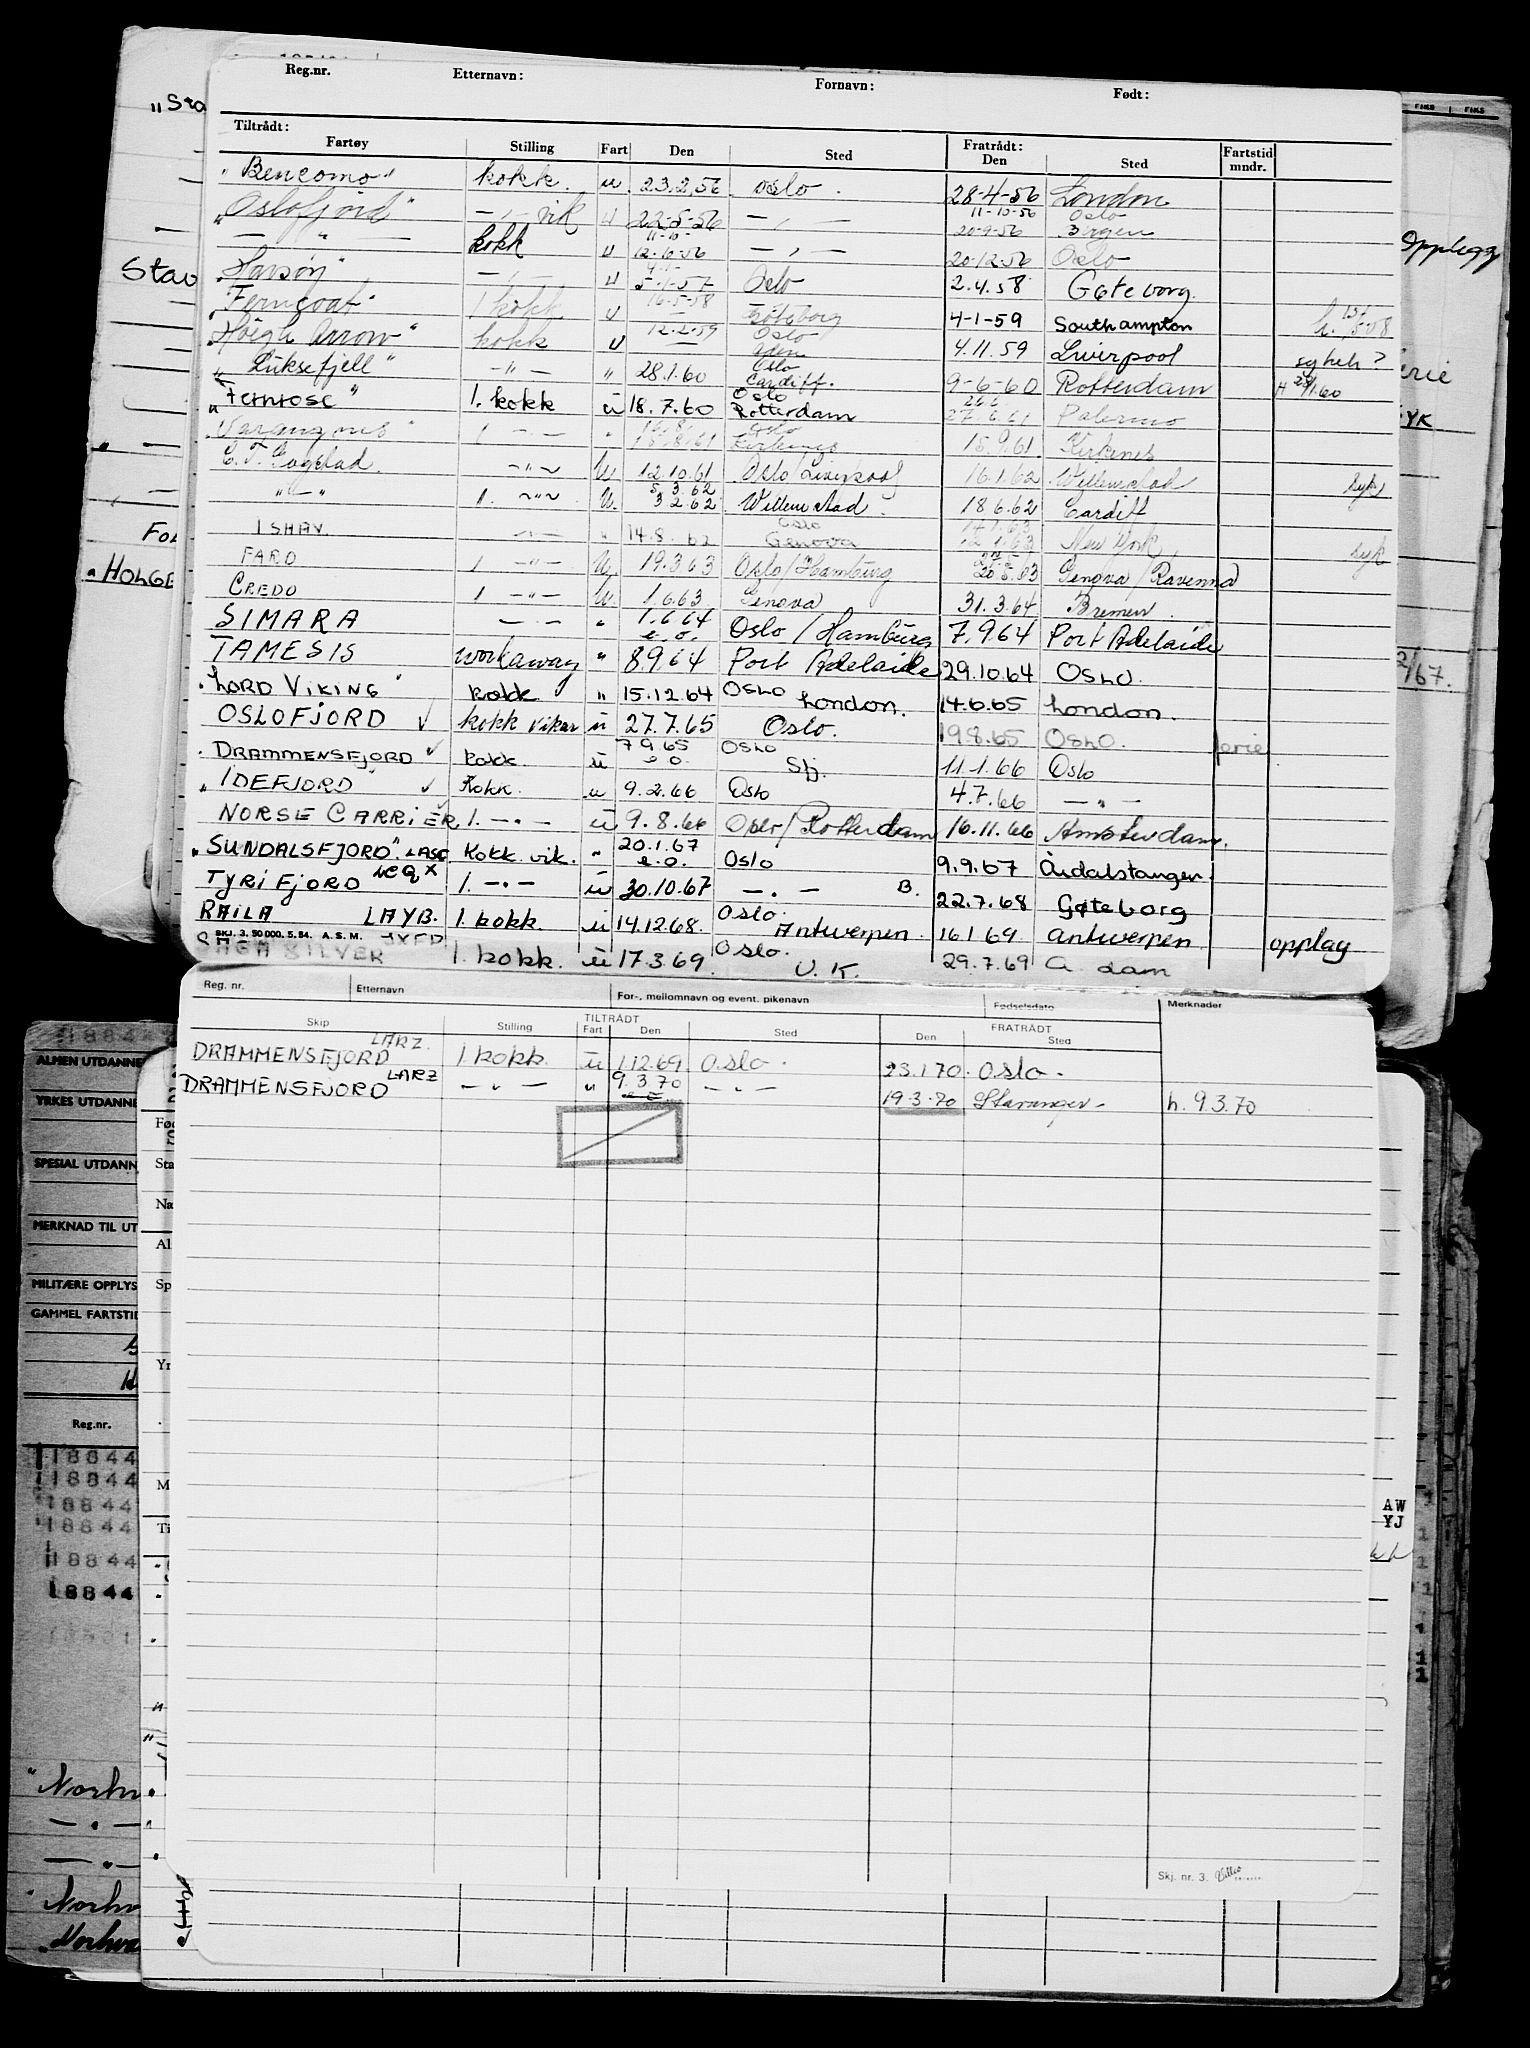 Reg.nr. Etternavn: Fornavn: Født:
Tiltrådt: Fratrådt:
Fartøy Stilling Fart Den Sted Den Sted Fartstid mndr.
"Bencomo" kokk. u 23.2.56 Oslo. 28-4-56 London
"Oslofjord" — " — vik u 22-5-56 — " — 11-10-56 Oslo 20-9-56 Bergen
— " — kokk u 11-10- 12.10.56 — " — 20-12-56 Oslo
"Havsøy" — " — u 5-1-57 Oslo 2.4.58 Gøteborg
"Ferncoat" 1 kokk u 16-5-58 Gøteborg 4-1-59 Southampton
Høegh Arrow" kokk u 12-2-59 Oslo 4.11.59 Liverpool sykeh?
" Luksefjell" — " — " 28.1.60 Oslo Cardiff. 9-6-60 Rotterdam
"Fernrose" 1. kokk u 18.7.60 Oslo Rotterdam 27.6.61 Palermo
"Varangnes" 1 — " — " 18.8.61 Oslo Kirkenes 15.9.61. Kirkenes
C.T. Gogstad. — " — u 12.10.61 Oslo/Liverpool 16.1.62 Willemstad syk
— " — 1. — " — u. 5.3.62 3.2.62 Willemstad. 18.6.62 Cardiff
ISHAV. — " — " 14.8.62 Oslo Genova 12.1.63 New York, syk
FARO 1 — " — u. 19.3.63 Oslo/Hamburg 20.5.63 Genova/Ravenna
CREDO 1 — " — u. 1.6.63 Genova 31.3.64 Bremen.
SIMARA — " — " 1.6.64 e.o. Oslo/Hamburg 7.9.64 Port Adelaide
TAMESIS workaway " 8.9.64 Port Adelaide 29.10.64 OSLO.
"LORD VIKING" kokk " 15.12.64 OSLO London. 14.6.65 London.
OSLOFJORD ✓ kokk vikar u 27.7.65 Oslo. 19.8.65 OSLO. ferie
"DRAMMENSFJORD" ✓ kokk. u 7.9.65 e.o. OSLO Stj. 11.1.66 Oslo
"IDEFJORD" ✓ Kokk. u 9.2.66 Oslo 4.7.66 — " —
NORSE CARRIER 1. — " — u 9.8.66 Oslo/Rotterdam 16.11.66 Amsterdam.
"SUNDALSFJORD". LASC Kokk. vik. " 20.1.67 e.o. Oslo 9.9.67 Årdalstangen.
TYRIFJORD LCQX 1. — " — u 30.10.67 — " — B. 22.7.68 Gøteborg
RAILA LAYB. 1. kokk. u 14.12.68. Oslo. Antwerpen. 16.1.69 Antwerpen opplag
SKJ. 3. 50 000. 5. 54. A.S.M.
SAGA SILVER JXFD 1. kokk. u 17.3.69. Oslo. U.K. 29.7.69 A.dam
Reg. nr. Etternavn For-, mellomnavn og event. pikenavn Fødselsdato Merknader
TILTRÅDT FRATRÅDT
Skip Stilling Fart Den Sted Den Sted
DRAMMENSFJORD LARZ. 1. kokk. u 1.12.69. Oslo. 23.1.70. Oslo.
DRAMMENSFJORD LARZ — " — " 9.3.70 — " — 19.3.70 Stavanger. h. 9.3.70
Skj. nr. 3.
"Sta
Stav
FOL
"HOLGE
Opplegg
erie
SYK
2/67.
18844
ALMEN UTDANNE
YRKES UTDANNE
SPESIAL UTDANN
MERKNAD TIL UT
MILITÆRE OPPLYS
GAMMEL FARTSTID
Reg.nr.
18844
18844
18844
18844
18844
18844
Sta
Na
Al
Sp
Yr
M
Ti
AW
YJ
"Norhv
"Norhv
"Norhva